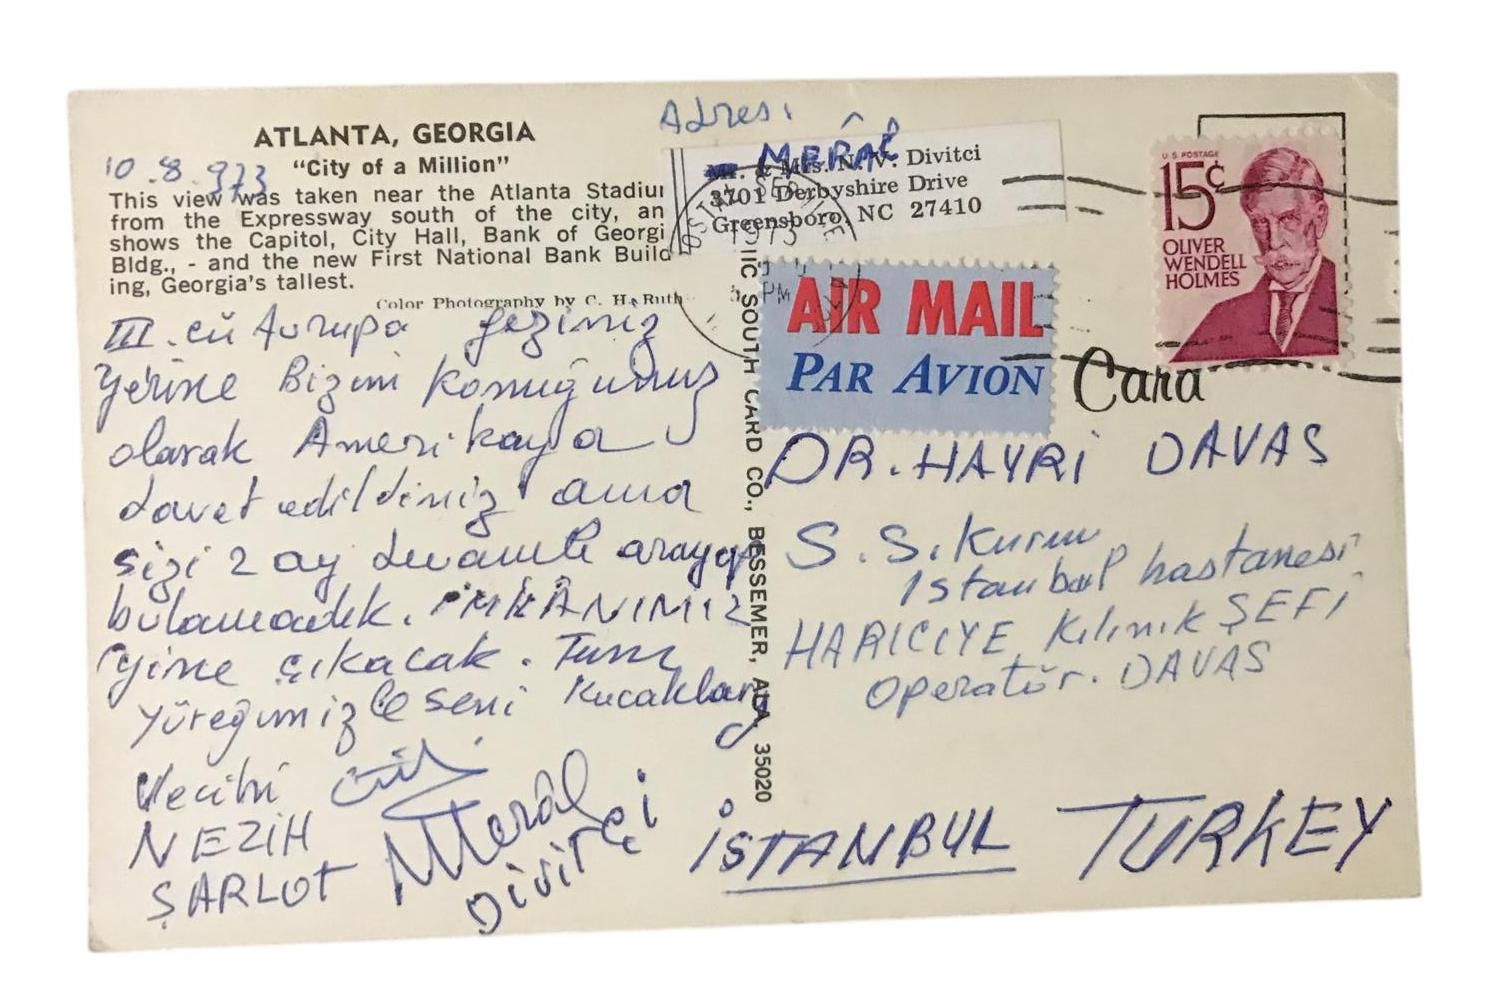 ATLANTA, GEORGIA
10.8.973 "City of a Million"
This view was taken near the Atlanta Stadiu
from the Expressway south of the city, an
shows the Capitol, City Hall, Bank of Georgi
Bldg., - and the new First National Bank Build
ing, Georgia's tallest.
Color Photography by C. H. Ruth
III. cü Avrupa gezimiz
yerine Bizim konuğumuz
olarak Amerikaya
davet edildiniz ama
sizi 2 ay devamlı arayıp
bulamadık. İMKÂNIMIZ
yine çıkacak. Tüm
yüreğimizle seni kucaklarız
Vecihi
NEZİH
ŞARLOT
Merâl
Divitçi
Adresi
MERÂL
Mr. & Mrs. N. V. Divitci
3701 Derbyshire Drive
Greensboro, NC 27410
1973
PM
IIC SOUTH CARD CO., BESSEMER, ALA. 35020
AIR MAIL
PAR AVION
U.S. POSTAGE
15¢
OLIVER
WENDELL
HOLMES
Card
DR. HAYRİ DAVAS
S. S. Kurum
Istanbul hastanesi
HARİCİYE Kılınik ŞEFİ
Operatör. DAVAS
İSTANBUL TURKEY